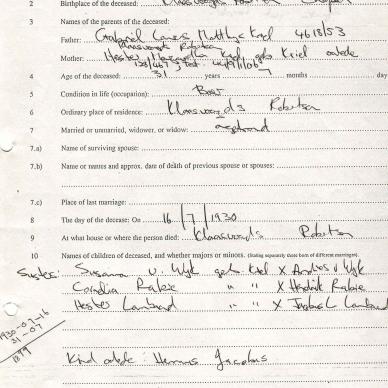 2 Birthplace of the deceased: Klaasvoogds Robertson
3 Names of the parents of the deceased:
Father: Gabriel Lourens Matthys Kriel 4618/53
Klaasvoogds Robertson
Mother: Hester Kriel geb Kriel
4 Age of the deceased: 31 years months day
5 Condition in life (occupation): Boer
6 Ordinary place of residence: Klaasvoogds Robertson
7 Married or unmarried, widower, or widow: ongetroud
7.a) Name of surviving spouse:
7.b) Name or names and approx. date of death of previous spouse or spouses:
7.c) Place of last marriage:
8 The day of the decease: On 16/7/1930
9 At what house or where the person died: Klaasvoogds Robertson
10 Names of children of deceased, and whether majors or minors. (Stating separately those born of different marriages).
Susters: Susanna v. Wyk geb. Kriel X Andries v Wyk
Cornelia Rabie " " X Hendrik Rabie
Hester Lombard " " X Lombard
1930-07-16
31-07
1899
Kind oorlede: Hermanus Jacobus